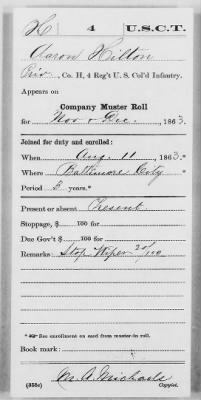 H 4 U.S.C.T.
Aaron Hilton
Priv, Co. H, 4 Reg't U. S. Col'd Infantry.
Appears on
Company Muster Roll
for Nov & Dec, 1863.
Joined for duty and enrolled:
When Aug. 11, 1863.*
Where Baltimore City *
Period 3 years.*
Present or absent Present
Stoppage, $ 100 for
Due Gov't $ 100 for
Remarks: Stop Wiper 20/100
* See enrollment on card from muster-in roll.
Book mark:
(358c) Copyist.